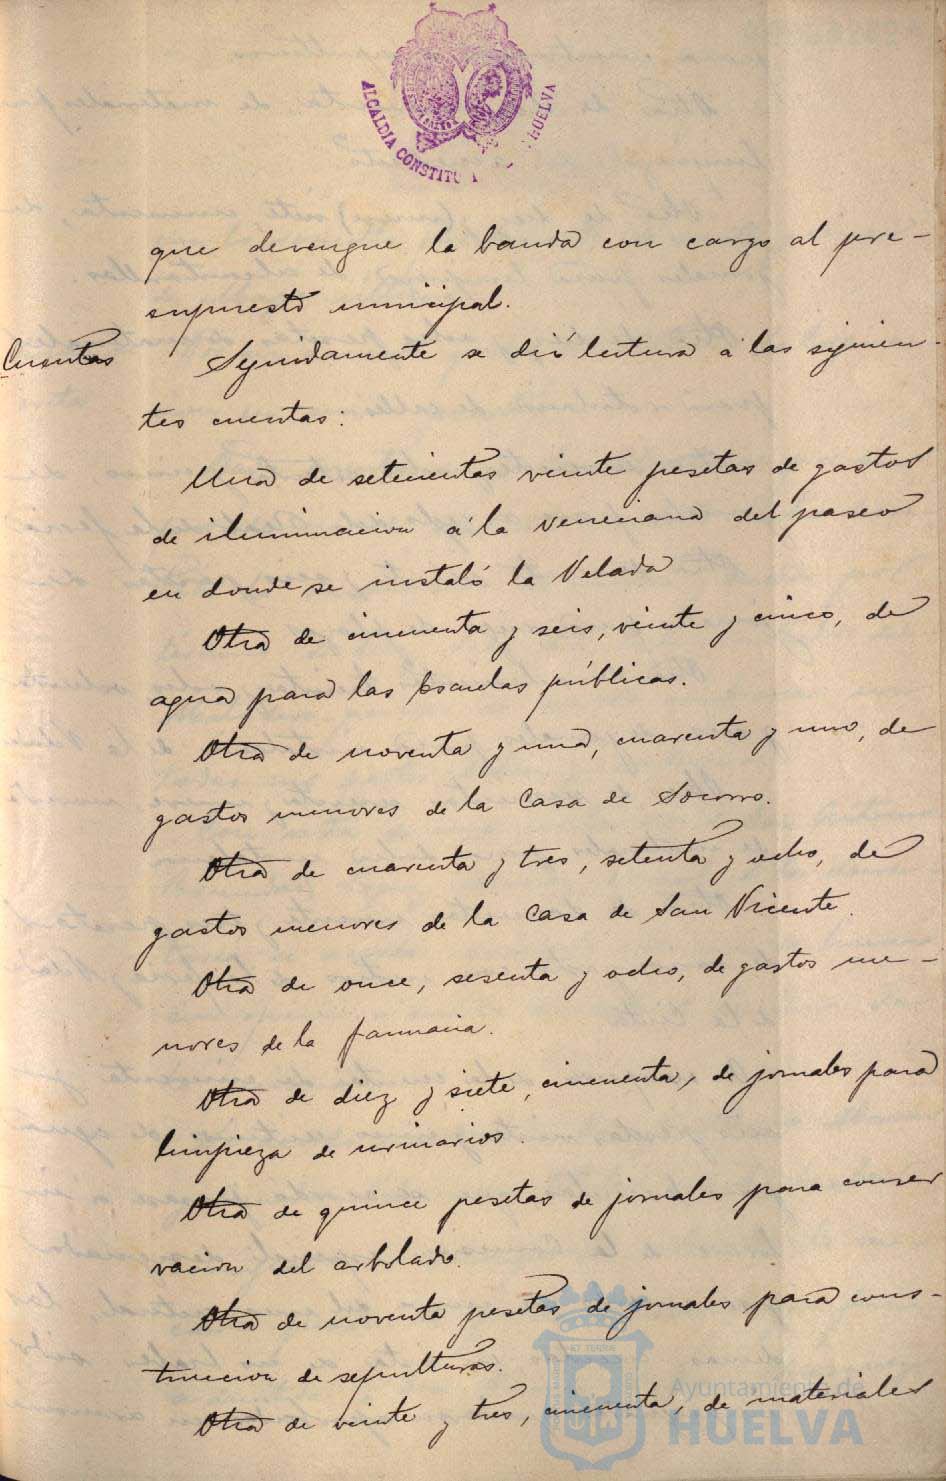 ALCALDIA CONSTITU HUELVA
que devengue la banda con cargo al pre-
supuesto municipal.
Cuentas
Seguidamente se dió lectura á las siguien-
tes cuentas:
Una de setecientas veinte pesetas de gastos
de iluminacion á la veneciana del paseo
en donde se instaló la Velada
Otra de cincuenta y seis, veinte y cinco, de
agua para las Escuelas públicas.
Otra de noventa y una, cuarenta y uno, de
gastos menores de la Casa de Socorro.
Otra de cuarenta y tres, setenta y ocho, de
gastos menores de la Casa de San Vicente.
Otra de once, sesenta y ocho, de gastos me-
nores de la farmacia.
Otra de diez y siete, cincuenta, de jornales para
limpieza de urinarios.
Otra de quince pesetas de jornales para conser
vacion del arbolado.
Otra de noventa pesetas de jornales para cons-
truccion de sepulturas.
Otra de veinte y tres, cincuenta, de materiales
Ayuntamiento de
HUELVA